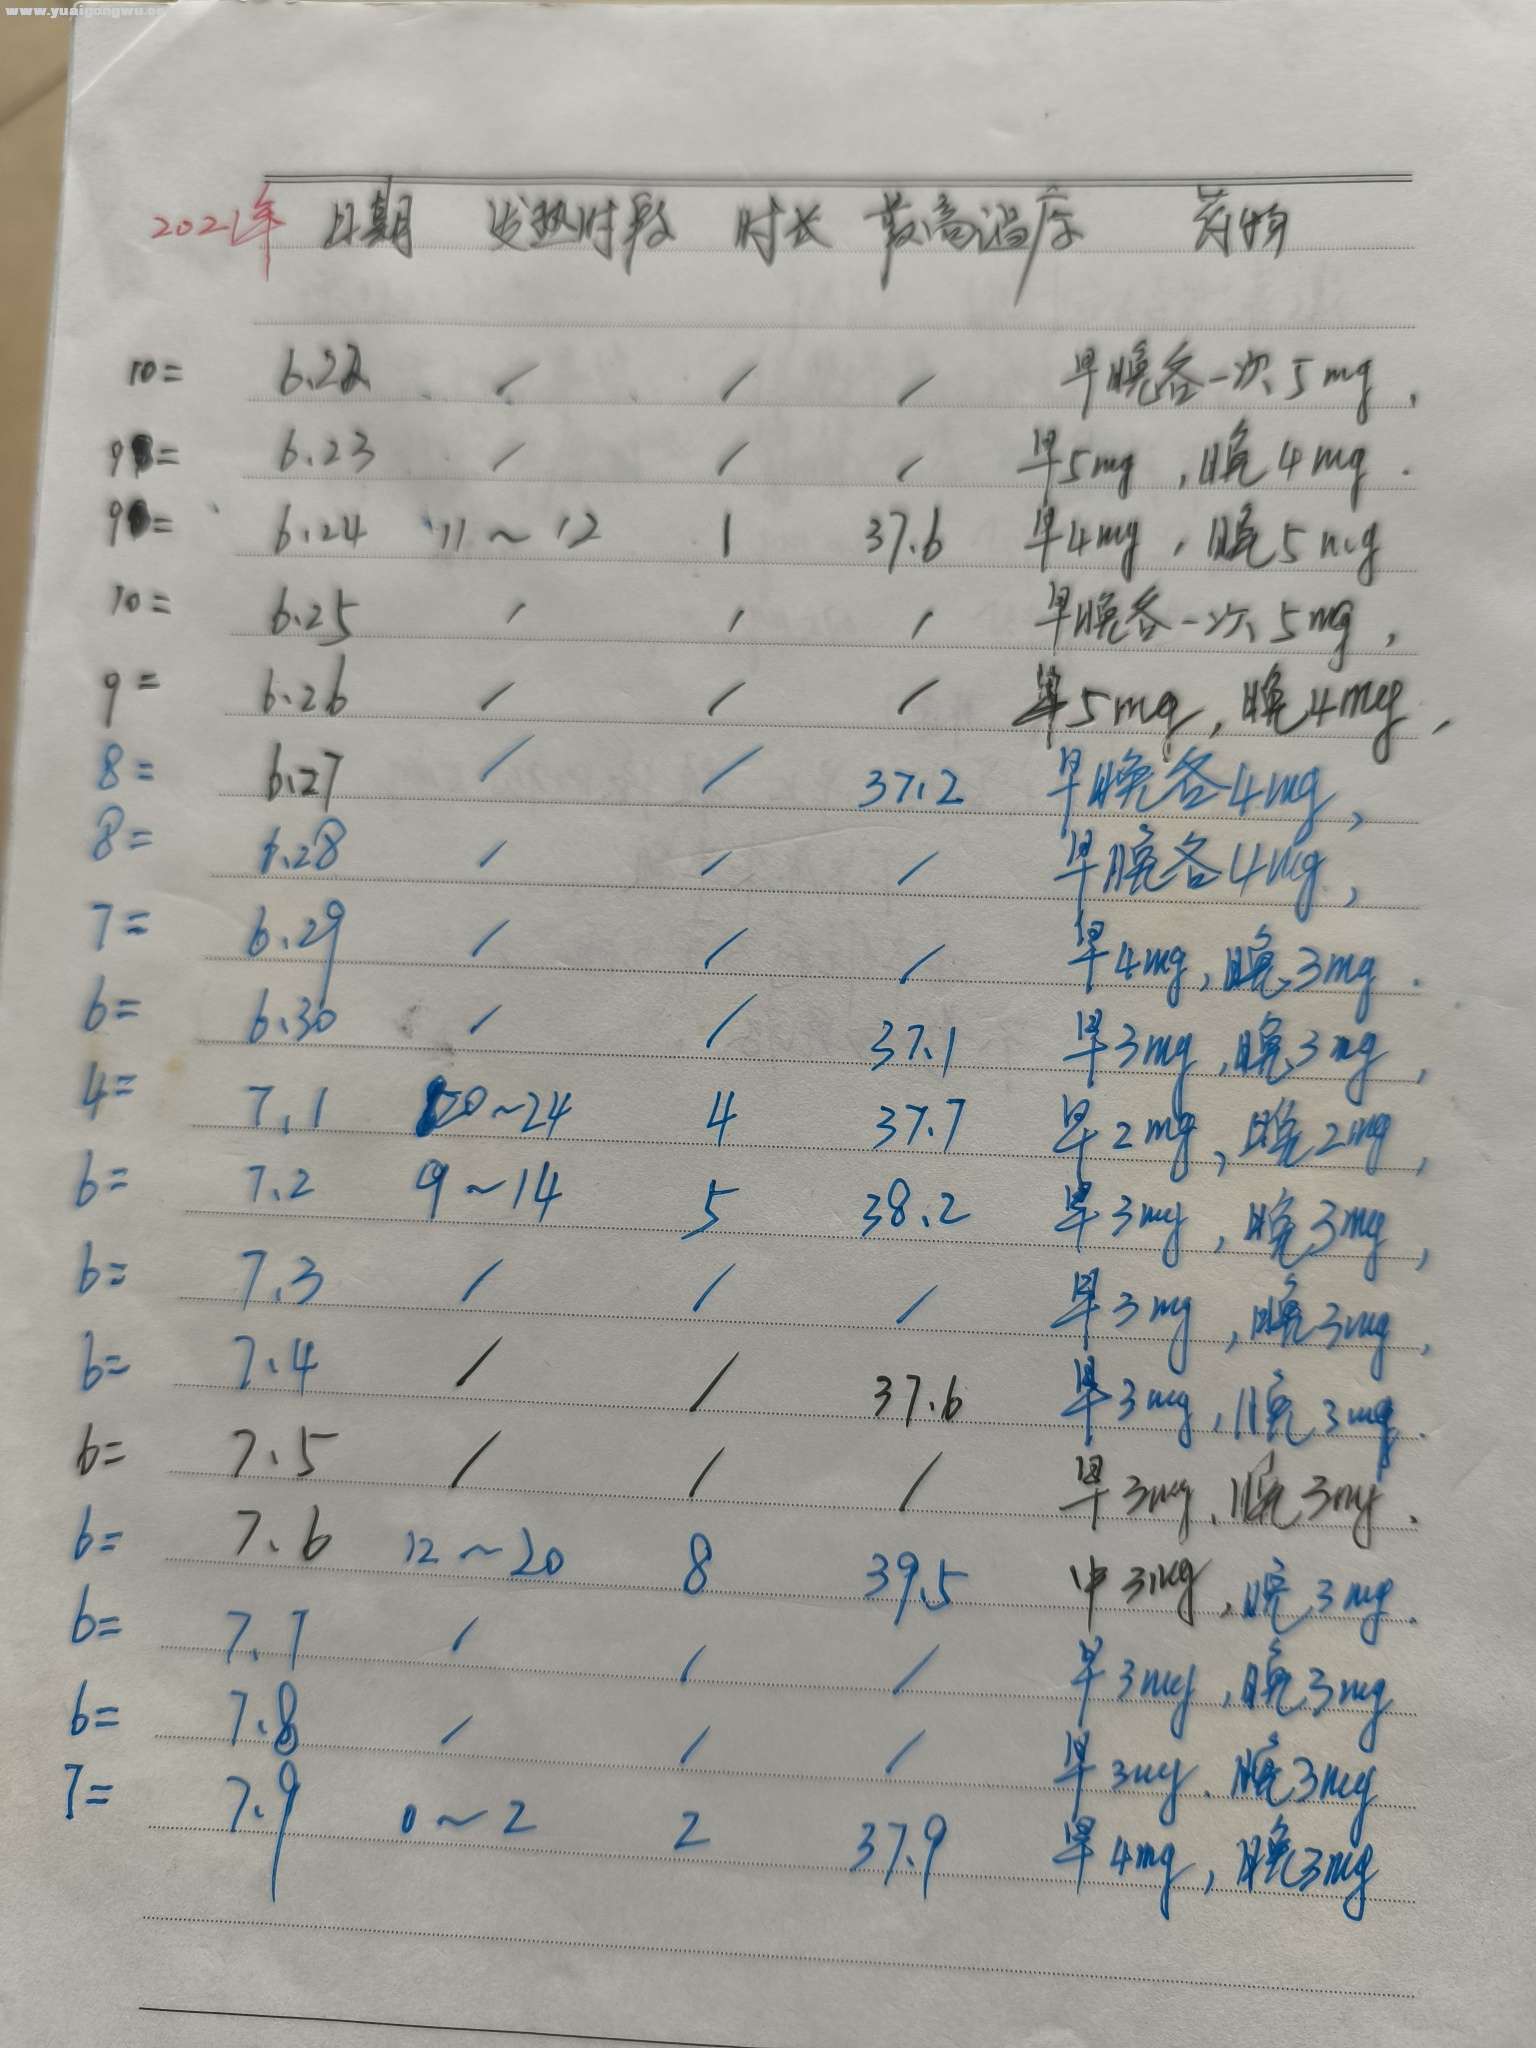 www.yuaigongwu.co
2021年 日期 发热时段 时长 最高温度 药物
10= 6.22 / / / 早晚各一次5mg,
9= 6.23 / / / 早5mg,晚4mg.
9= 6.24 11~12 1 37.6 早4mg,晚5mg
10= 6.25 / / / 早晚各一次5mg,
9= 6.26 / / / 早5mg,晚4mg,
8= 6.27 / / 37.2 早晚各4mg,
8= 6.28 / / / 早晚各4mg,
7= 6.29 / / / 早4mg,晚3mg.
6= 6.30 / / 37.1 早3mg,晚3mg,
4= 7.1 20~24 4 37.7 早2mg,晚2mg,
6= 7.2 9~14 5 38.2 早3mg,晚3mg,
6= 7.3 / / / 早3mg,晚3mg,
6= 7.4 / / 37.6 早3mg,晚3mg.
6= 7.5 / / / 早3mg,晚3mg.
6= 7.6 12~20 8 39.5 中3mg,晚3mg.
6= 7.7 / / / 早3mg,晚3mg
6= 7.8 / / / 早3mg.晚3mg
7= 7.9 0~2 2 37.9 早4mg,晚3mg